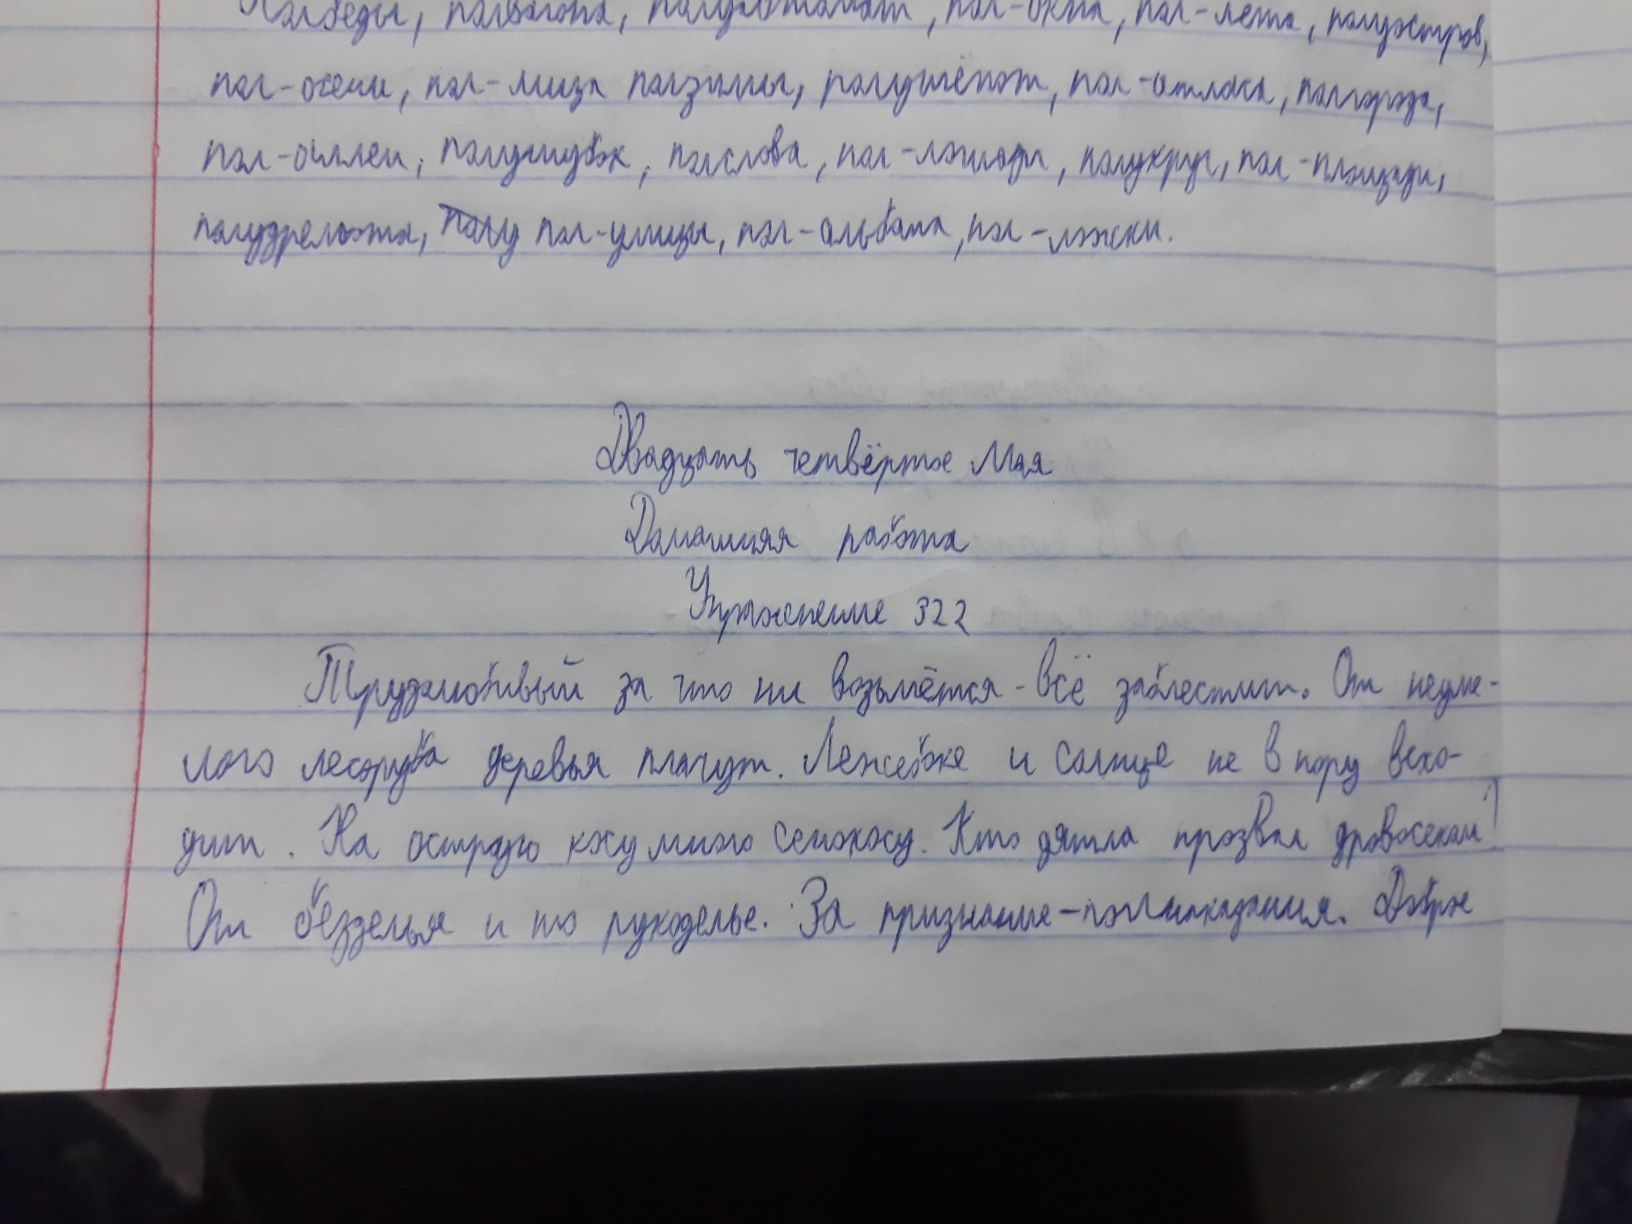 Полбеды, полвагона, полуавтомат, пол-окна, пол-лета, полуостров,
пол-осени, пол-лица ползимы, полушёпот, пол-атласа, полгорода,
пол-аллеи, полушубок, полслова, пол-лошади, полукруг, пол-площади,
полудремота, полу пол-улицы, пол-альбома, пол-ложки.
Двадцать четвёртое Мая
Домашняя работа
Упражнение 322
Трудолюбивый за что ни возьмётся - всё заблестит. От неуме-
лого лесоруба деревья плачут. Лежебоке и солнце не в пору всхо-
дит. На острую косу много сенокосу. Кто дятла прозвал дровосеком!
От безделья и то рукоделье. За признание - полнаказания. Доброе